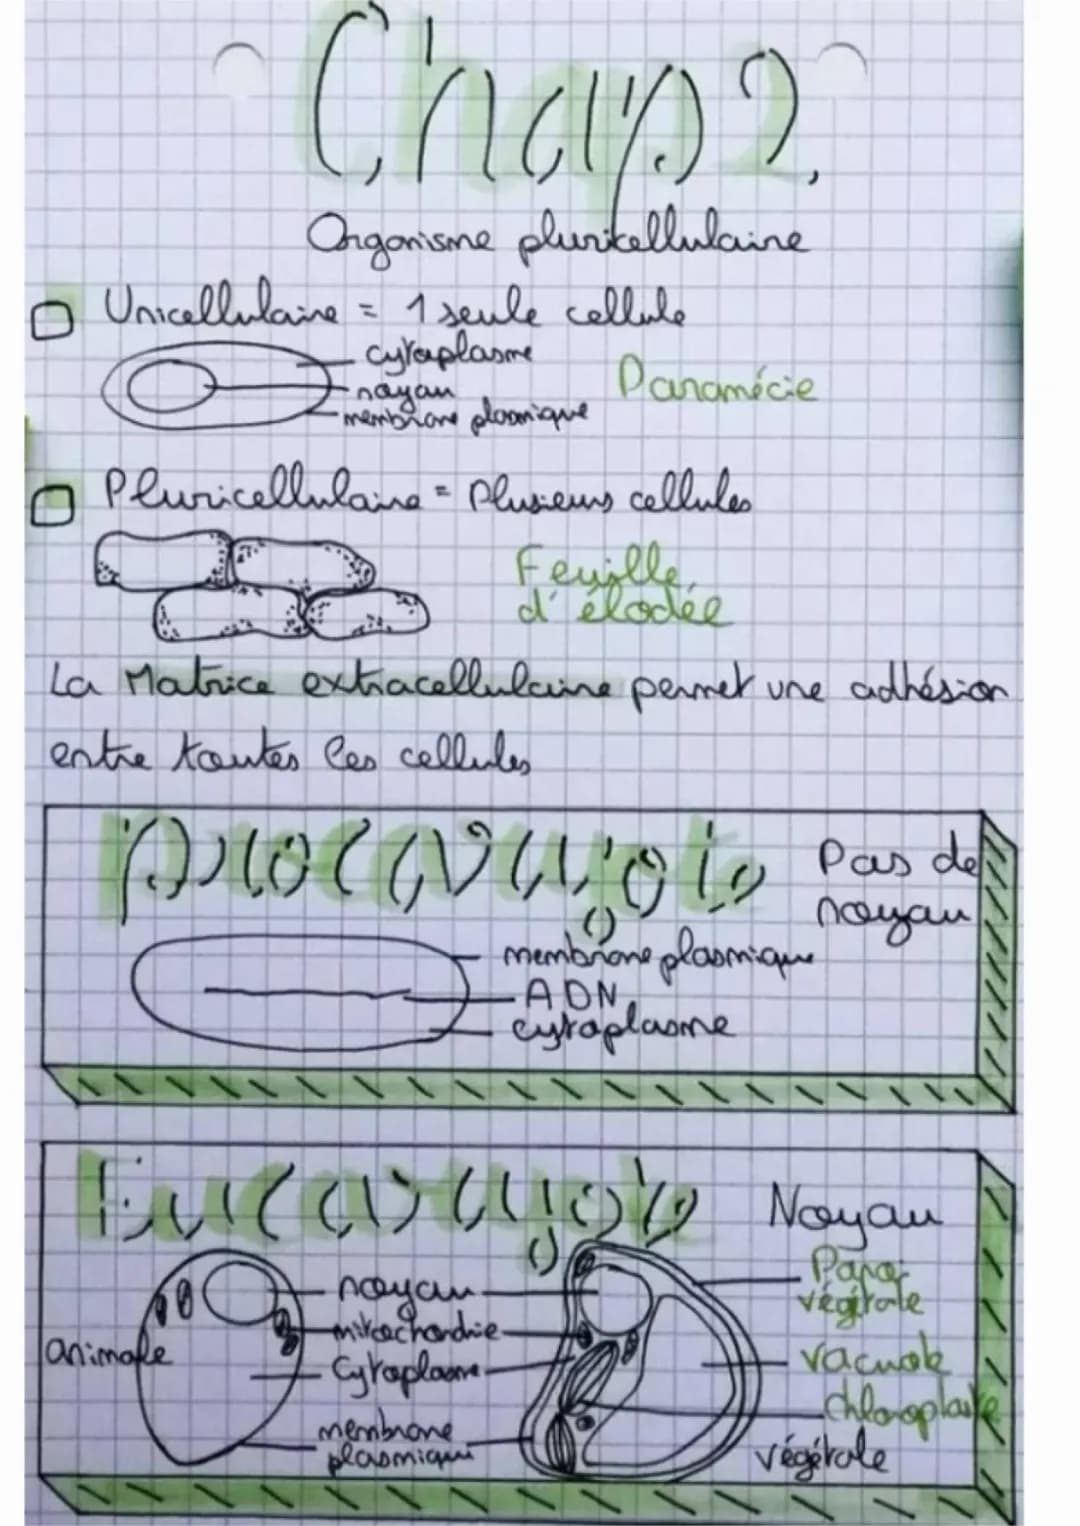 Chap 2
Organisme pluricellulaire
Unicellulaire = 1 seule cellule
cytoplasme
noyau
membrane plasmique
Paramécie
Pluricellulaire = Plusieurs cellules
Feuille
d'élodée
La Matrice extracellulaire permet une adhésion
entre toutes les cellules
Procaryote
Pas de
noyau
membrane plasmique
ADN
cytoplasme
Eucaryote
Noyau
animale
noyau
mitochondrie
Cytoplasme
membrane
plasmique
Paroi
végétale
vacuole
chloroplaste
végétale